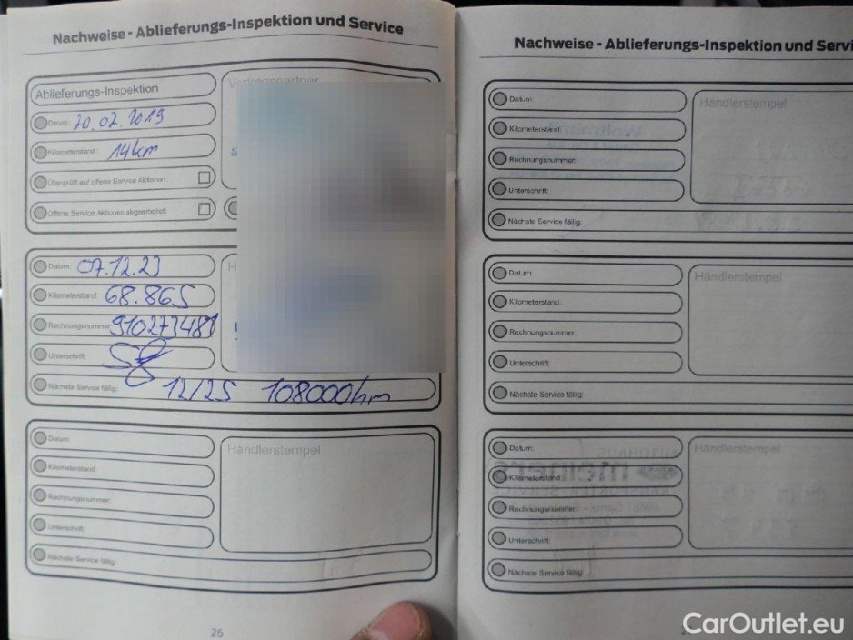 Nachweise - Ablieferungs-Inspektion und Service
Ablieferungs-Inspektion
Datum: 20.02.2019
Kilometerstand: 14km
Überprüft auf offene Service Aktionen:
Offene Service Aktionen abgearbeitet:
Datum: 07.12.23
Kilometerstand: 68.865
Rechnungsnummer: 910273481
Unterschrift:
Nächste Service fällig: 12/25 108000km
Datum:
Händlerstempel
Kilometerstand:
Rechnungsnummer:
Unterschrift:
Nächste Service fällig:
26
Nachweise - Ablieferungs-Inspektion und Servi
Datum:
Händlerstempel
Kilometerstand:
Rechnungsnummer:
Unterschrift:
Nächste Service fällig:
Datum:
Händlerstempel
Kilometerstand:
Rechnungsnummer:
Unterschrift:
Nächste Service fällig:
Datum:
Händlerstempel
Kilometerstand:
Rechnungsnummer:
Unterschrift:
Nächste Service fällig:
CarOutlet.eu